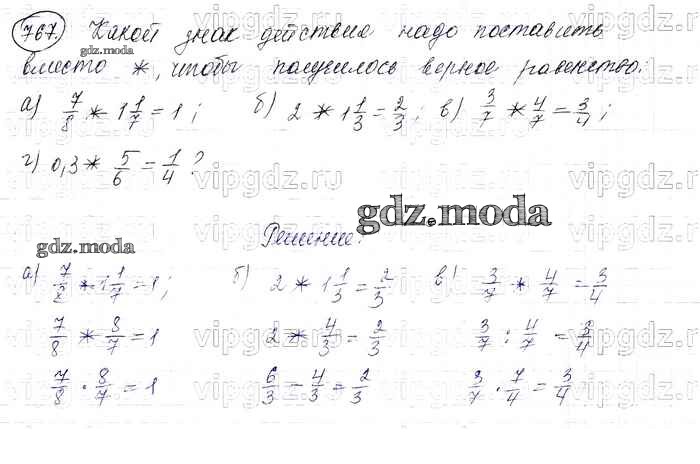 767. Какой знак действия надо поставить
gdz.moda
вместо *, чтобы получилось верное равенство:
а) 7/8 * 1 1/7 = 1; б) 2 * 1 1/3 = 2/3; в) 3/7 * 4/7 = 3/4;
г) 0,3 * 5/6 = 1/4?
vipgdz.ru vipgdz.ru vipgdz.ru
gdz.moda
gdz.moda
Решение:
а) 7/8 * 1 1/7 = 1; б) 2 * 1 1/3 = 2/3 в) 3/7 * 4/7 = 3/4
7/8 * 8/7 = 1 2 * 4/3 = 2/3 3/7 : 4/7 = 3/4
7/8 · 8/7 = 1 6/3 − 4/3 = 2/3 3/7 · 7/4 = 3/4